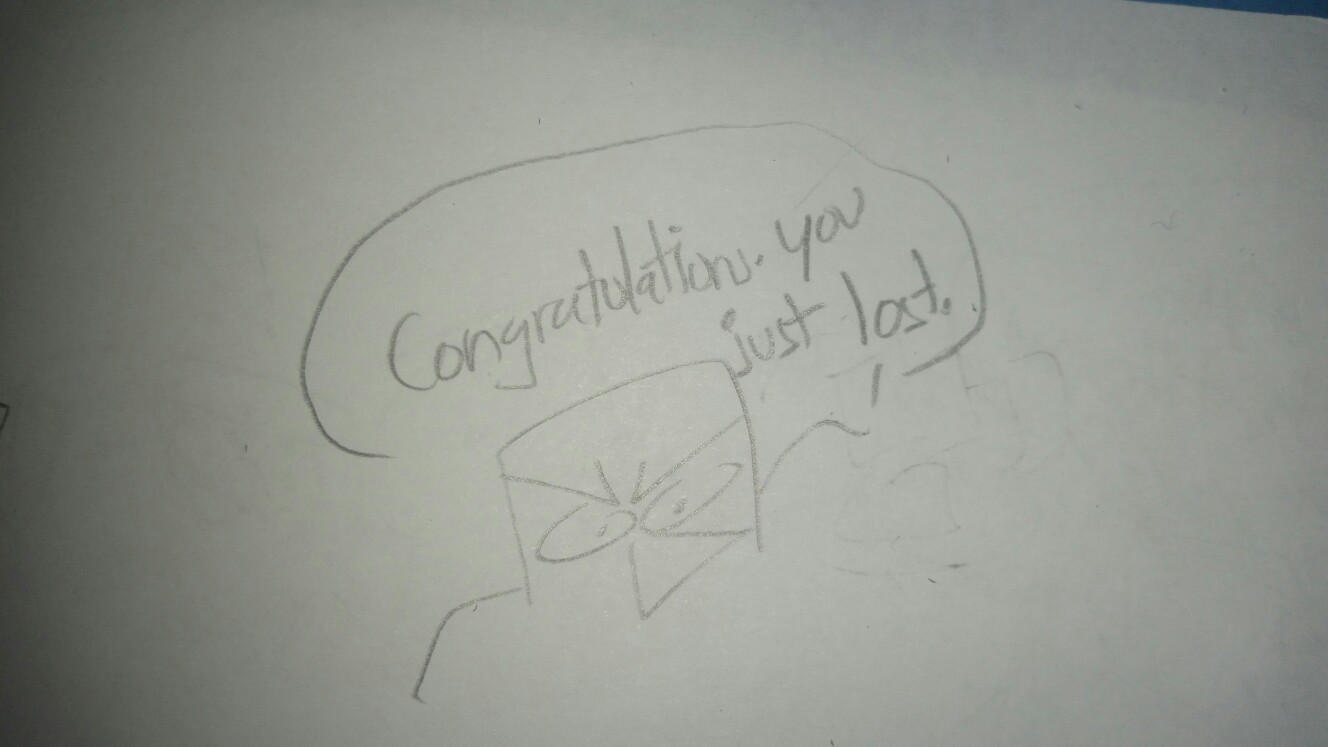 Congratulations. you
just lost.